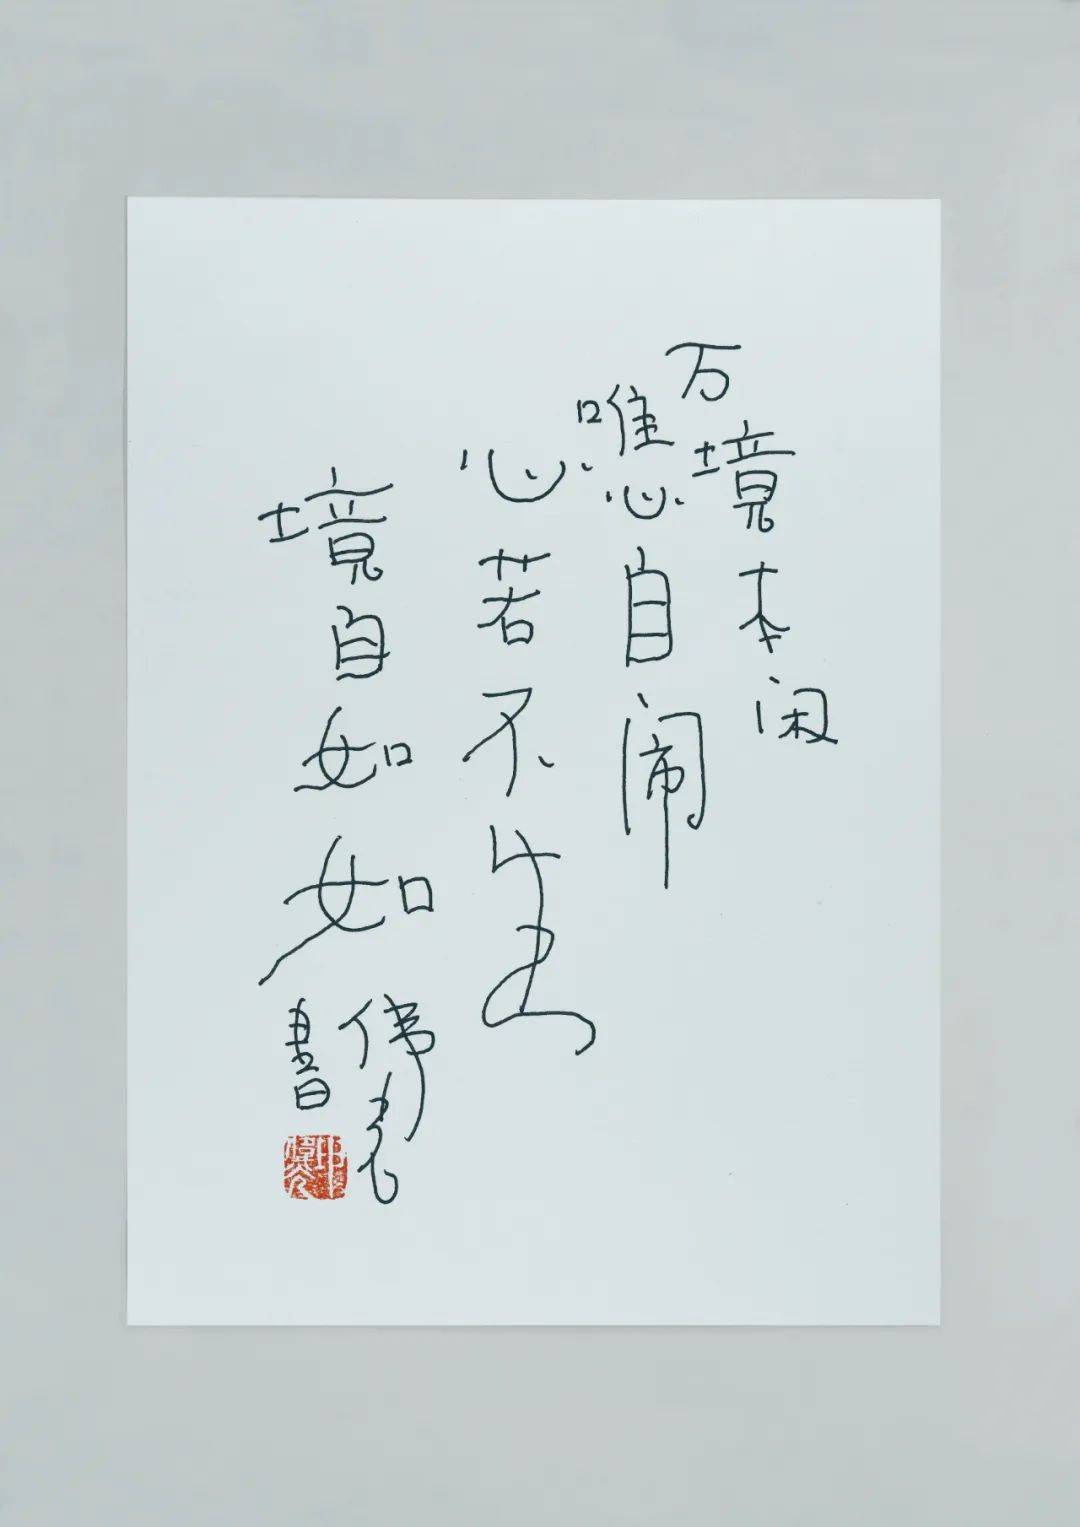 万境本闲
唯心自闹
心若不生
境自如如
伟亮
書